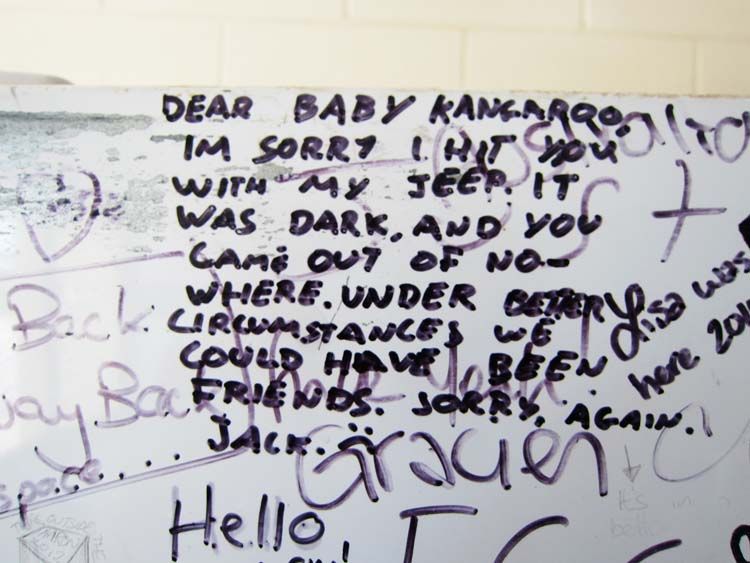 DEAR BABY KANGAROO,
IM SORRY I HIT YOU
WITH MY JEEP. IT
WAS DARK, AND YOU
CAME OUT OF NO-
WHERE. UNDER BETTER
CIRCUMSTANCES WE
COULD HAVE BEEN
FRIENDS. SORRY, AGAIN.
JACK. :(
Lisa was
here 201
Back
way Back
space.....
Gracien
Hello